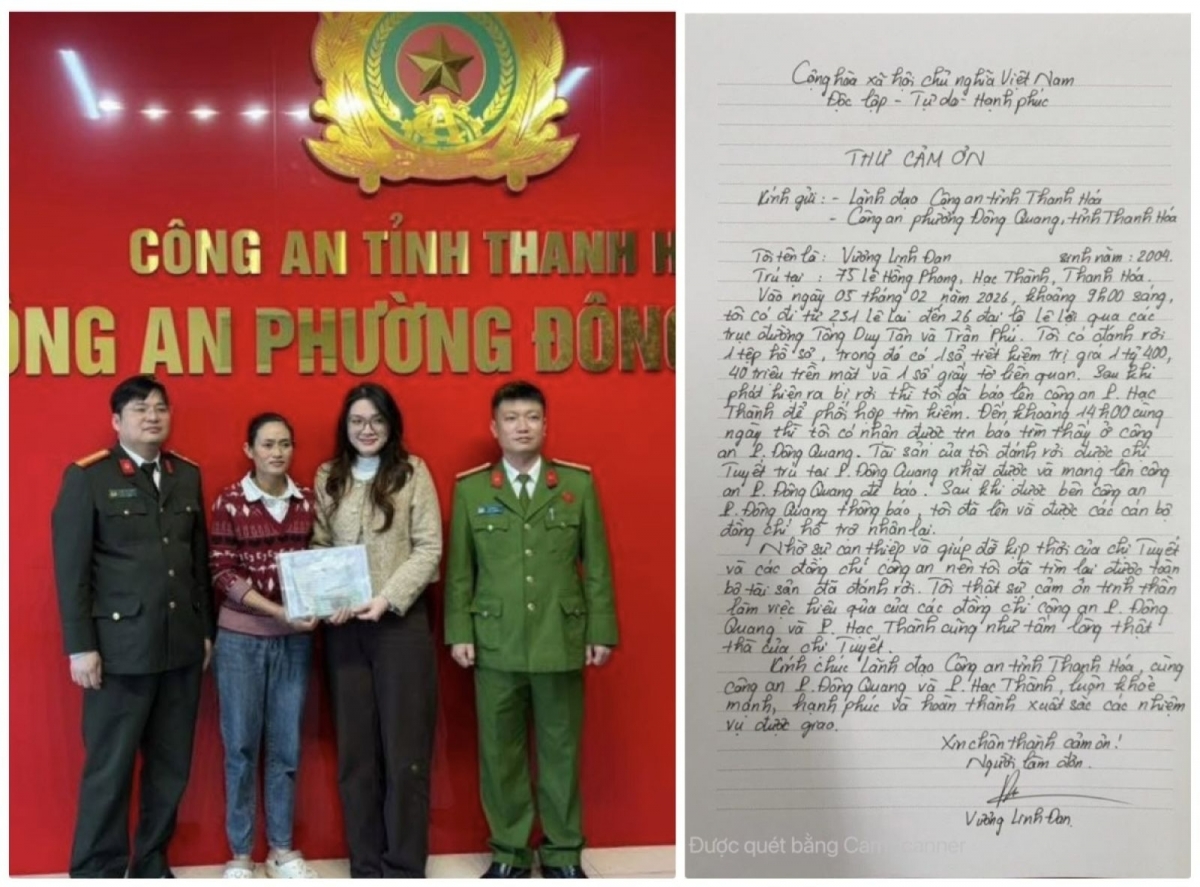 CÔNG AN TỈNH THANH H
ÔNG AN PHƯỜNG ĐÔNG
Cộng hòa xã hội chủ nghĩa Việt Nam
Độc lập - Tự do - Hạnh phúc
THƯ CẢM ƠN
Kính gửi : - Lãnh đạo Công an tỉnh Thanh Hóa
- Công an phường Đông Quang, tỉnh Thanh Hóa
Tôi tên là : Vương Linh Đan sinh năm : 2004.
Trú tại : 75 Lê Hồng Phong, Hạc Thành, Thanh Hóa.
Vào ngày 05 tháng 02 năm 2026, khoảng 9h00 sáng,
tôi có đi từ 231 lê lai đến 26 đại lộ lê lợi qua các
trục đường Tống Duy Tân và Trần Phú. Tôi có đánh rơi
1 tệp hồ sơ, trong đó có 1 sổ tiết kiệm trị giá 1 tỷ 400,
40 triệu tiền mặt và 1 số giấy tờ liên quan. Sau khi
phát hiện ra bị rơi thì tôi đã báo lên công an P. Hạc
Thành để phối hợp tìm kiếm. Đến khoảng 14h00 cùng
ngày thì tôi có nhận được tin báo tìm thấy ở công
an P. Đông Quang. Tài sản của tôi đánh rơi được chị
Tuyết trú tại P. Đông Quang nhặt được và mang lên công
an P. Đông Quang để báo. Sau khi được bên công an
P. Đông Quang thông báo, tôi đã lên và được các cán bộ
đồng chí hỗ trợ nhận lại.
Nhờ sự can thiệp và giúp đỡ kịp thời của chị Tuyết
và các đồng chí công an nên tôi đã tìm lại được toàn
bộ tài sản đã đánh rơi. Tôi thật sự cảm ơn tinh thần
làm việc hiệu qủa của các đồng chí công an P. Đông
Quang và P. Hạc Thành cũng như tấm lòng thật
thà của chị Tuyết.
Kính chúc Lãnh đạo Công an tỉnh Thanh Hóa, cùng
công an P. Đông Quang và P. Hạc Thành, luôn khỏe
mạnh, hạnh phúc và hoàn thành xuất sắc các nhiệm
vụ được giao.
Xin chân thành cảm ơn!
Người làm đơn.
Vương Linh Đan.
Được quét bằng CamScanner